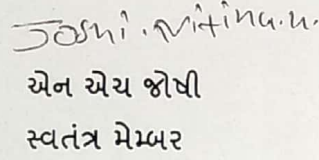 Joshi. Nitin. H.
એન એચ જોષી
સ્વતંત્ર મેમ્બર